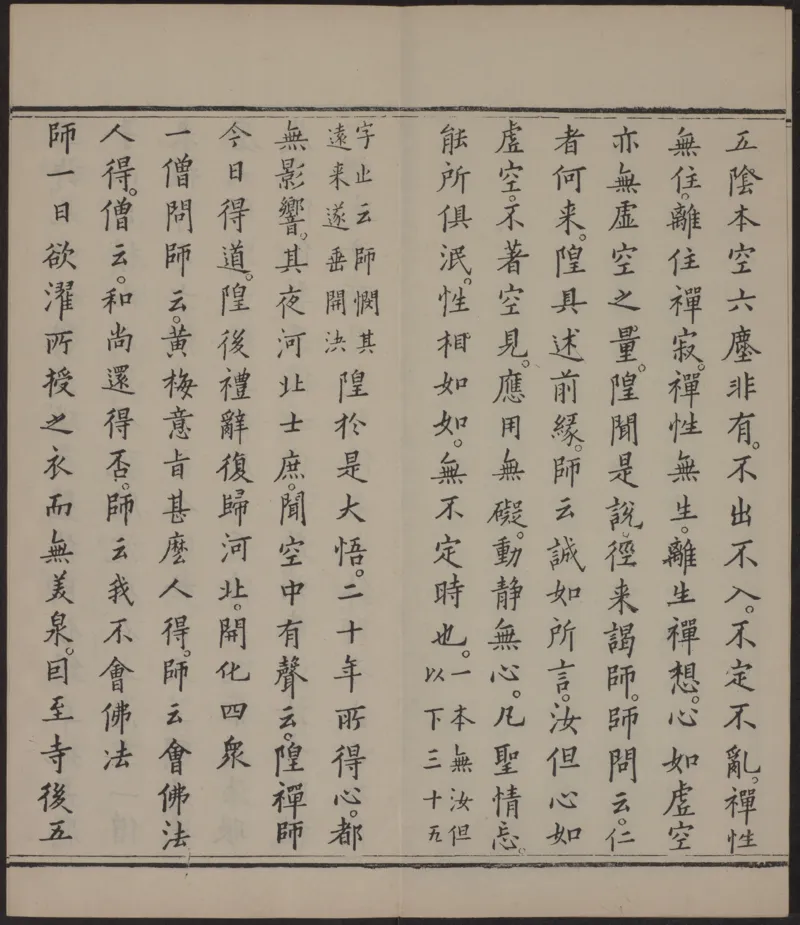 五陰本空六塵非有。不出不入。不定不亂。禪性
無住。離住禪寂。禪性無生。離生禪想。心如虛空
亦無虛空之量。隍聞是說。徑来謁師。師問云。仁
者何来。隍具述前緣。師云誠如所言。汝但心如
虛空。不著空見。應用無礙。動静無心。凡聖情忘。
能所俱泯。性相如如。無不定時也。一本無汝但
以下三十五
字止云師憫其
遠来遂垂開決
隍於是大悟。二十年所得心。都
無影響。其夜河北士庶。聞空中有聲云。隍禪師
今日得道。隍後禮辭復歸河北。開化四衆
一僧問師云。黄梅意旨甚麼人得。師云會佛法
人得。僧云。和尚還得否。師云我不會佛法
師一日欲濯所授之衣而無美泉。因至寺後五